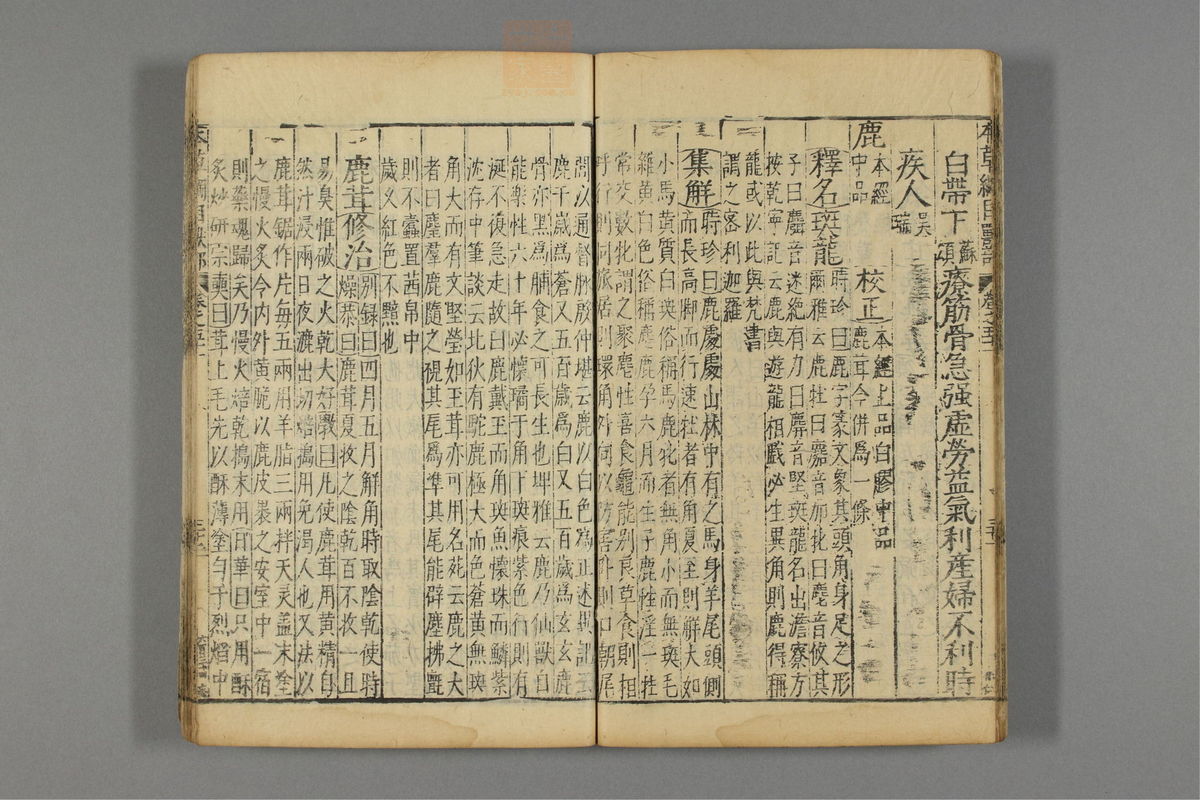 白帶下蘇頌療筋骨急強虛勞益氣利產婦不利時
疾人吳瑞
鹿本經中品 校正本經上品白膠中品鹿茸今併為一條
釋名斑龍時珍曰鹿字篆文象其頭角身足之形
爾雅云鹿牡曰麚音加牝曰麀音攸其
子曰麛音迷絕有力曰麉音堅斑龍名出澹寮方
按乾寧記云鹿與遊龍相戲必生異角則鹿得稱
龍或以此與梵書
謂之密利迦羅
集解時珍曰鹿處處山林中有之馬身羊尾頭側
而長高脚而行速牡者有角夏至則解大如
小馬黃質白斑俗稱馬鹿牝者無角小而無斑毛
雜黃白色俗稱麀鹿孕六月而生子鹿性淫一牡
常交數牝謂之聚麀性喜食龜能別良草食則相
呼行則同旅居則環角外向以防害卧則口朝尾
閭以通督脉殷仲堪云鹿以白色為正述異記云
鹿千歲爲蒼又五百歲爲白又五百歲爲玄玄鹿
骨亦黑爲脯食之可長生也埤雅云鹿乃仙獸自
能樂性六十年必懷璚于角下斑痕紫色行則有
涎不復急走故曰鹿戴玉而角斑魚懷珠而鱗紫
沈存中筆談云北狄有駝鹿極大而色蒼黃無斑
角大而有文堅瑩如玉茸亦可用名苑云鹿之大
者曰麈羣鹿隨之視其尾爲準其尾能辟塵拂氈
則不蠹置茜帛中
歲乆紅色不黯也
鹿茸修治别録曰四月五月解角時取陰乾使時
燥恭曰鹿茸夏收之陰乾百不收一且
易臭惟破之火乾大好斆曰凡使鹿茸用黃精自
然汁浸兩日夜漉出切焙搗用免渴人也又法以
鹿茸鋸作片每五兩用羊脂三兩拌天灵盖末塗
之慢火炙令內外黃脆以鹿皮裹之安室中一宿
則藥魂歸矣乃慢火焙乾搗末用日華曰只用酥
炙炒研宗奭曰茸上毛先以酥薄塗勻于烈焰中